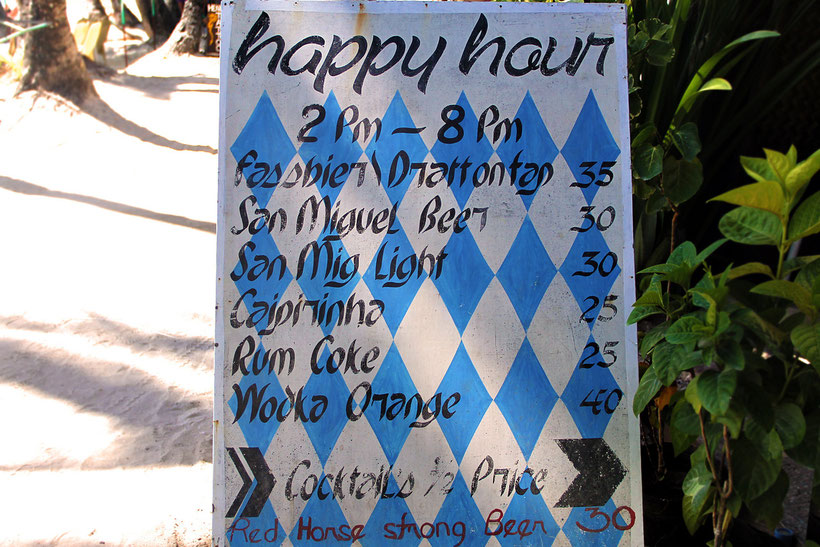 happy hour
2 Pm - 8 Pm
Fassbier\Draftontap 35
San Miguel Beer 30
San Mig Light 30
Cajpirinha 25
Rum Coke 25
Wodka Orange 40
Cocktail's ½ Price
Red Horse strong Beer 30